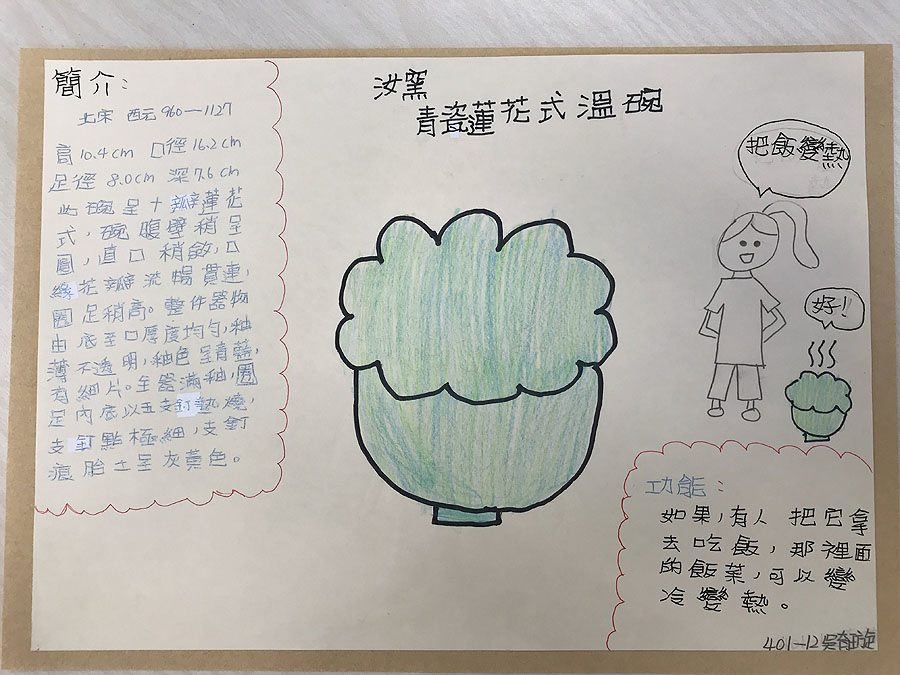 簡介:
北宋 西元960—1127
高10.4cm 口徑16.2cm
足徑 8.0cm 深7.6cm
此碗呈十瓣蓮花
式，碗腹壁稍呈
圓，直口稍斂，口
緣花瓣流暢貫連，
圈足稍高。整件器物
由底至口厚度均勻，釉
薄不透明，釉色呈青藍，
有細片。全瓷滿釉，圈
足內底以五支釘墊燒，
支釘點極細，支釘
痕胎土呈灰黃色。
汝窯
青瓷蓮花式溫碗
把飯變熱
好!
功能:
如果，有人 把它拿
去吃飯，那裡面
的飯菜，可以變
冷變熱。
401—12吳